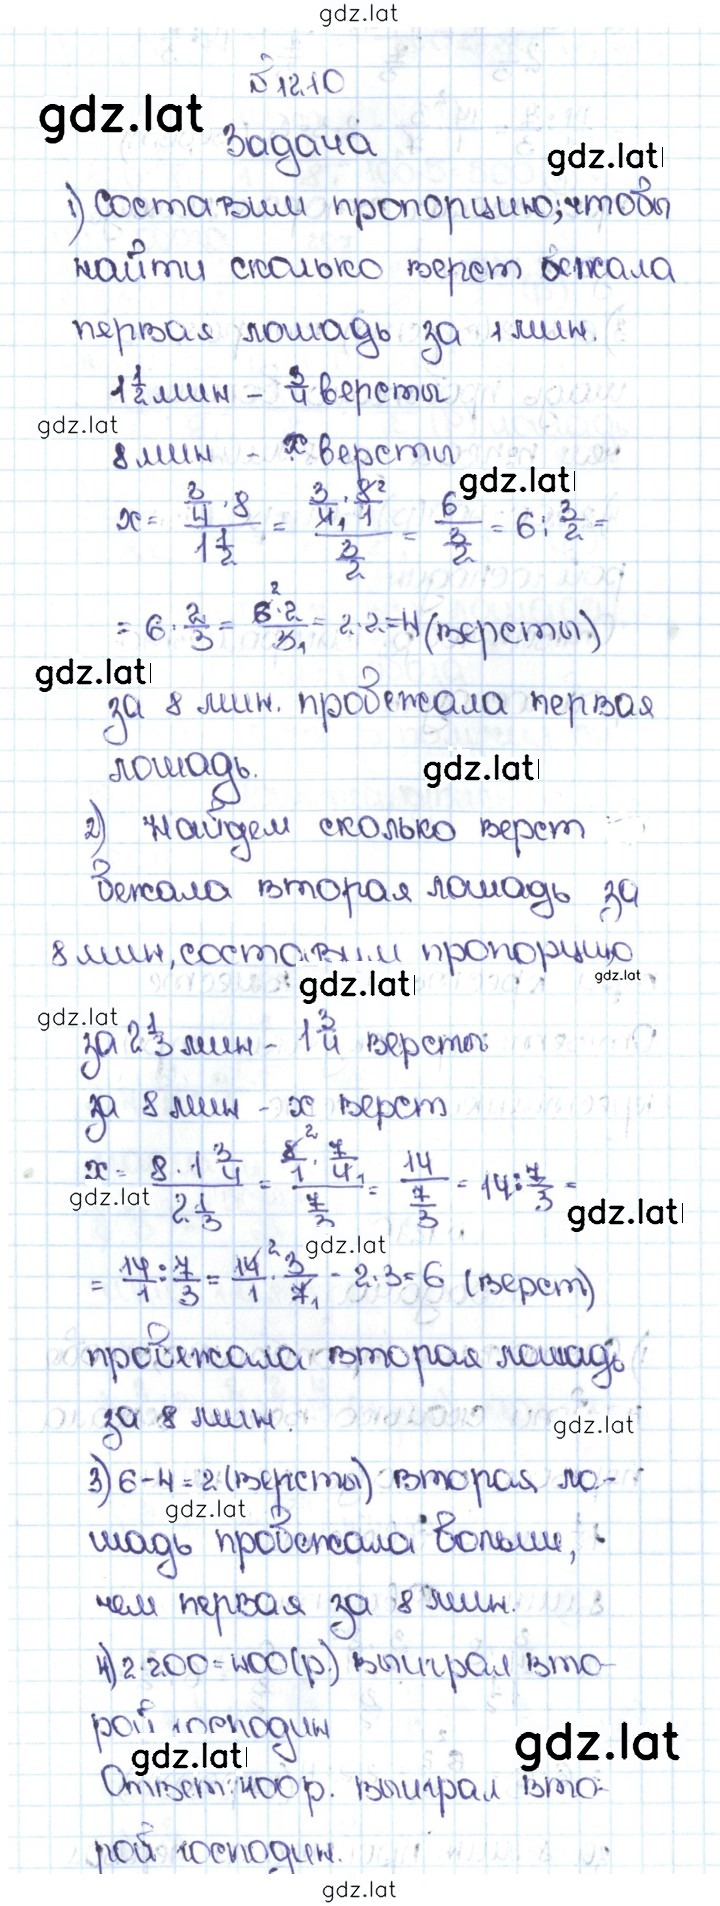 gdz.lat
№12.10
gdz.lat
Задача
gdz.lat
1) Составим пропорцию, чтобы
найти сколько верст бежала
первая лошадь за 1 мин.
1 1/2 мин - 3/4 версты
gdz.lat
8 мин - x версты
gdz.lat
x = (3/4 · 8)/(1 1/2) = (3/4₁ · 8²/1)/(3/2) = 6/(3/2) = 6 : 3/2 =
= 6 · 2/3 = (6² · 2)/3₁ = 2·2=4 (версты)
gdz.lat
за 8 мин. пробежала первая
лошадь.
gdz.lat
2) Найдем сколько верст
бежала вторая лошадь за
8 мин, составим пропорцию
gdz.lat
gdz.lat
gdz.lat
за 2 1/3 мин - 1 3/4 версты
за 8 мин - x верст
x = (8 · 1 3/4)/(2 1/3) = (8²/1 · 7/4₁)/(7/3) = 14/(7/3) = 14 : 7/3 =
gdz.lat
gdz.lat
gdz.lat
= 14/1 : 7/3 = 14²/1 · 3/7₁ = 2·3=6 (верст)
пробежала вторая лошадь
за 8 мин.
gdz.lat
3) 6-4=2 (версты) вторая ло-
gdz.lat
шадь пробежала больше,
чем первая за 8 мин.
4) 2·200=400(р.) выиграл вто-
рой господин
gdz.lat
gdz.lat
Ответ: 400 р. выиграл вто-
рой господин.
gdz.lat